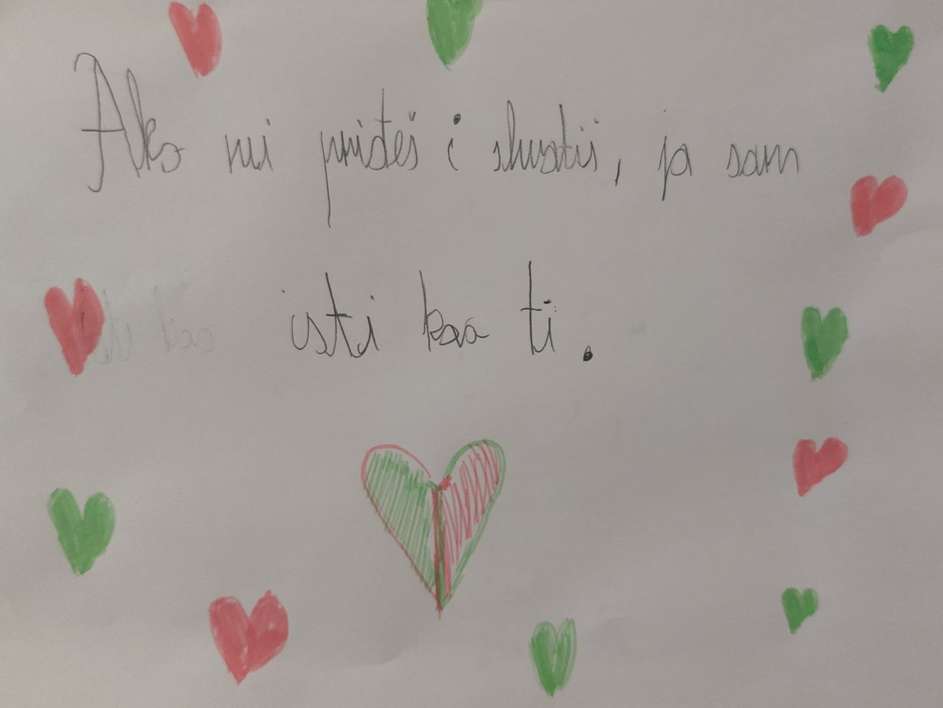 Ako mi priđeš i shvatiš, ja sam
isti kao ti.